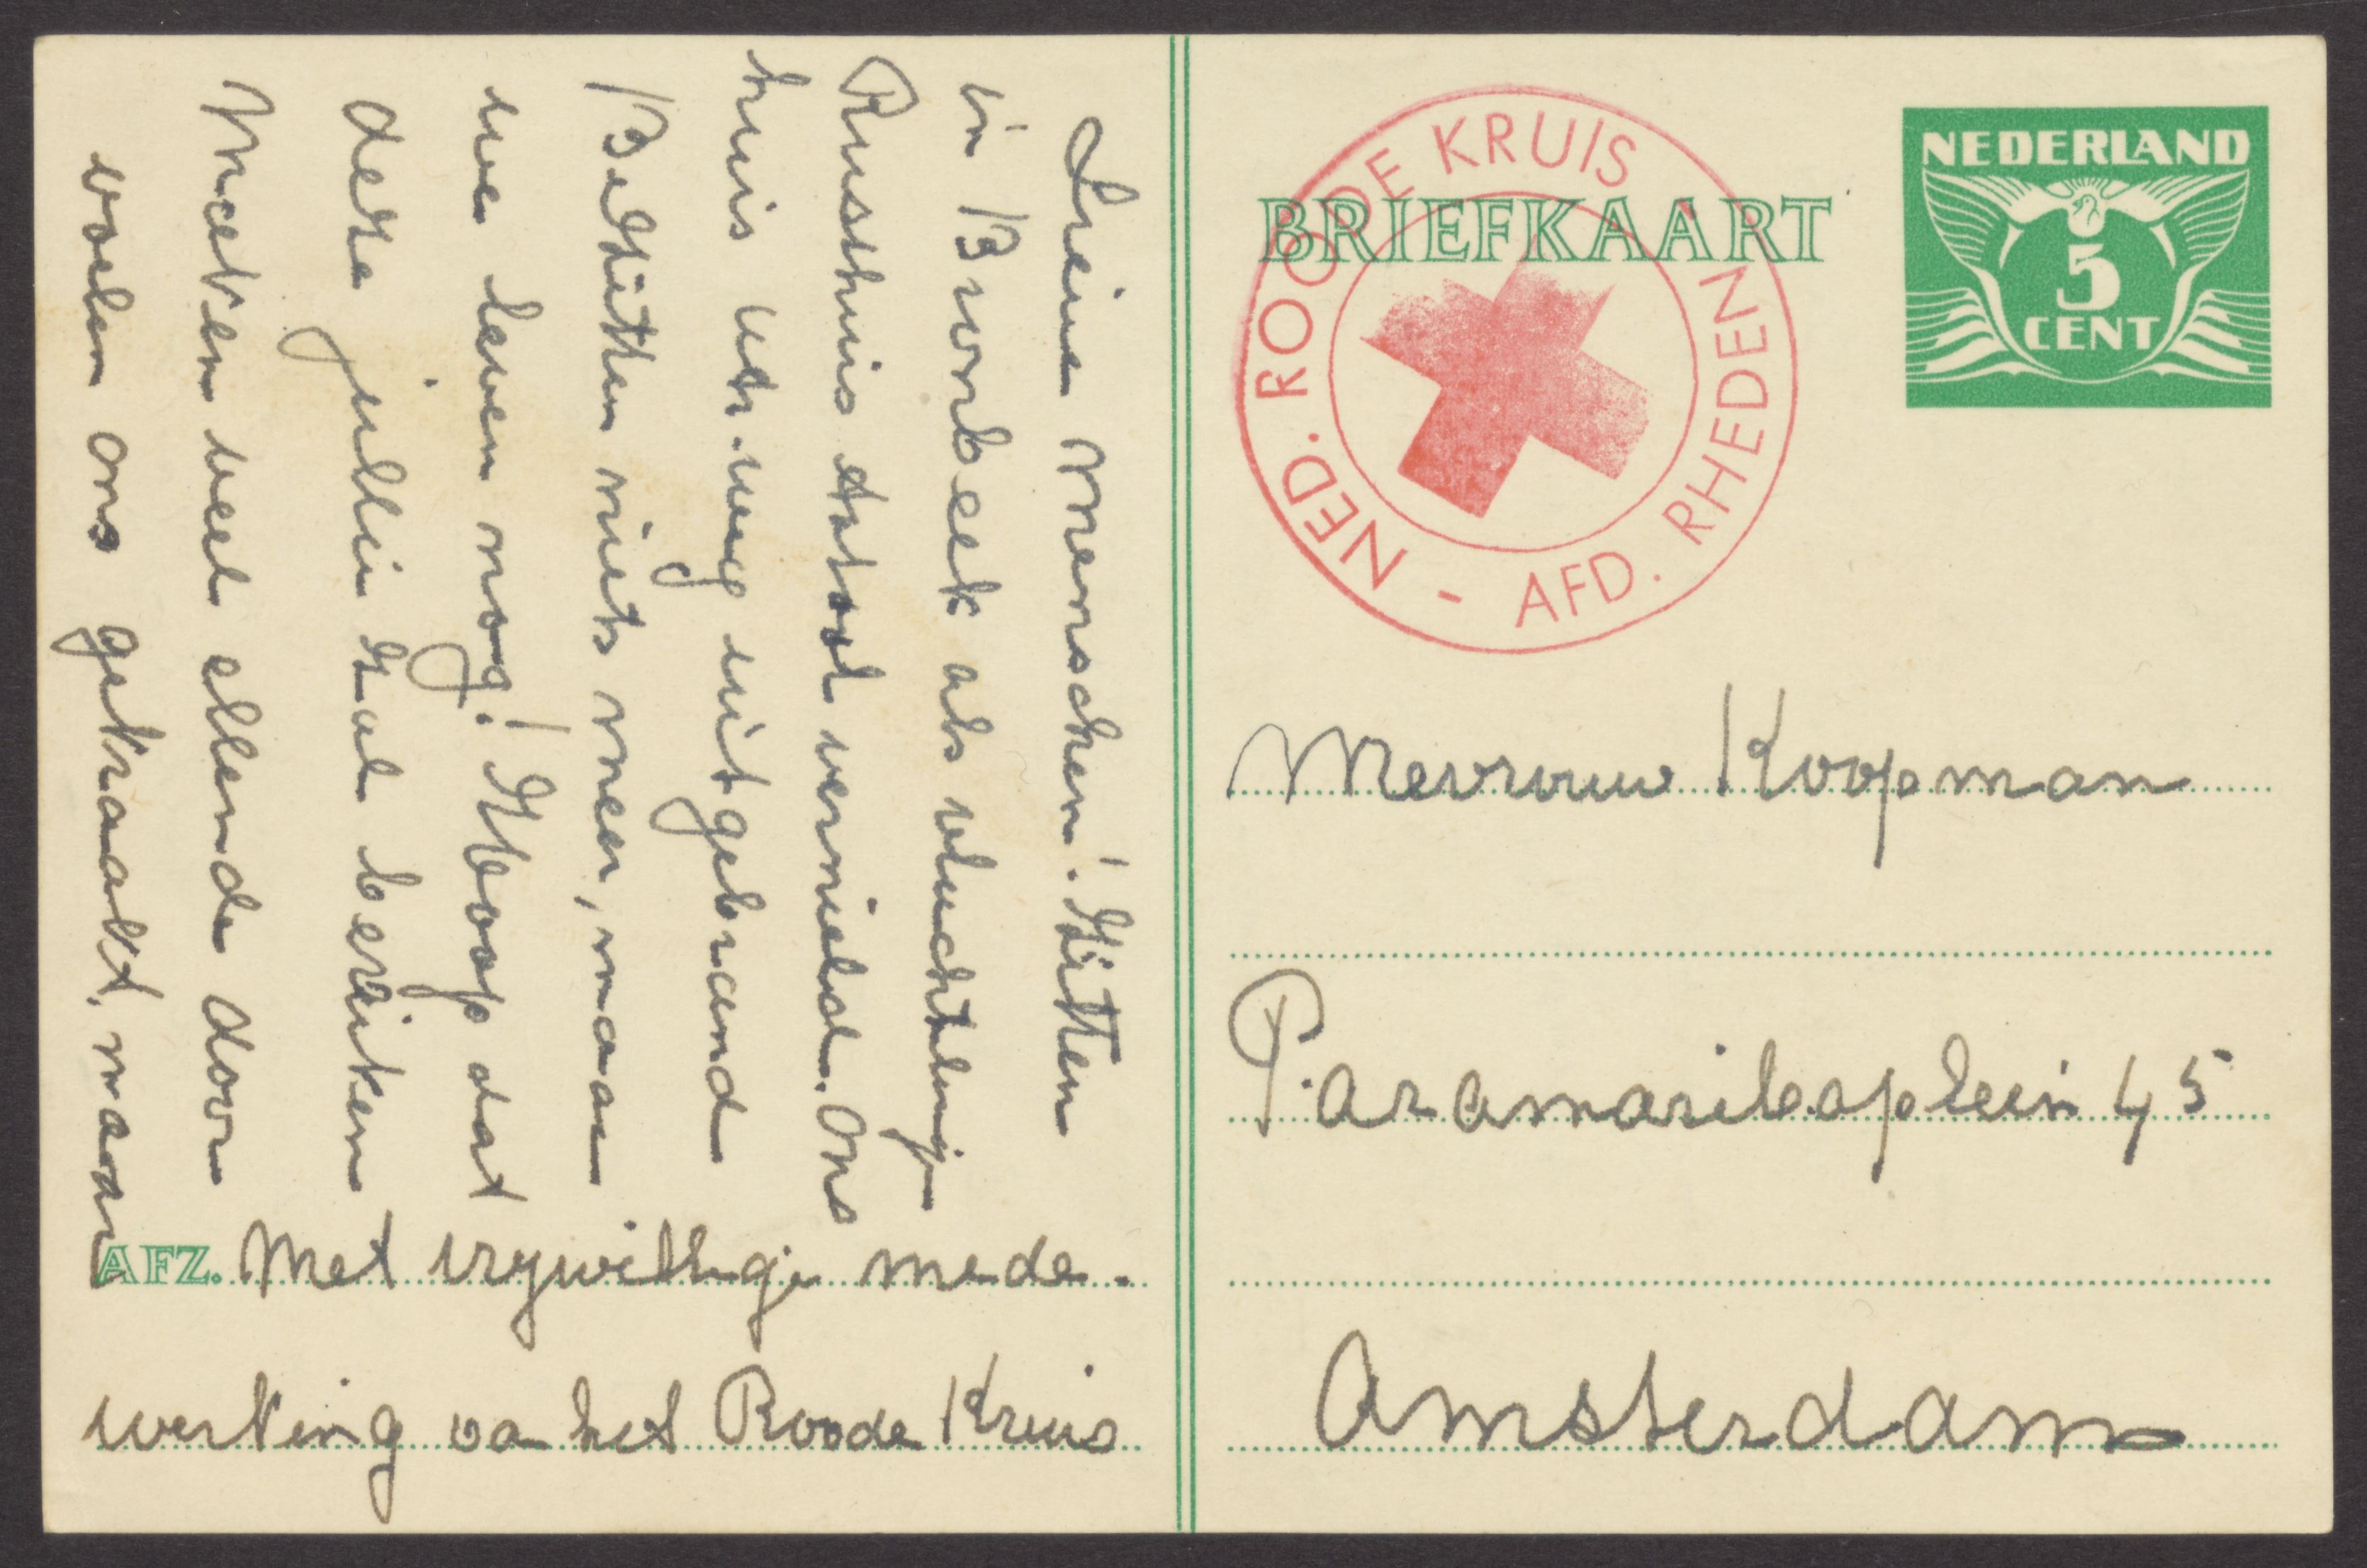 Lieve menschen! Zitten
in Dworbeek als vluchteling.
Rusthuis totaal vernield. Ons
huis uitgebrand
Bezitten niets meer, maar
we leven nog! Hoop dat
deze jullie zal bereiken
Maken veel ellende door
voelen ons gekraakt, maar
AFZ. Met vrywillige mede-
werking van het Roode Kruis
BRIEFKAART
NED. ROODE KRUIS - AFD. RHEDEN
NEDERLAND
5
CENT
Mevrouw Koopman
Paramariboplein 45
Amsterdam